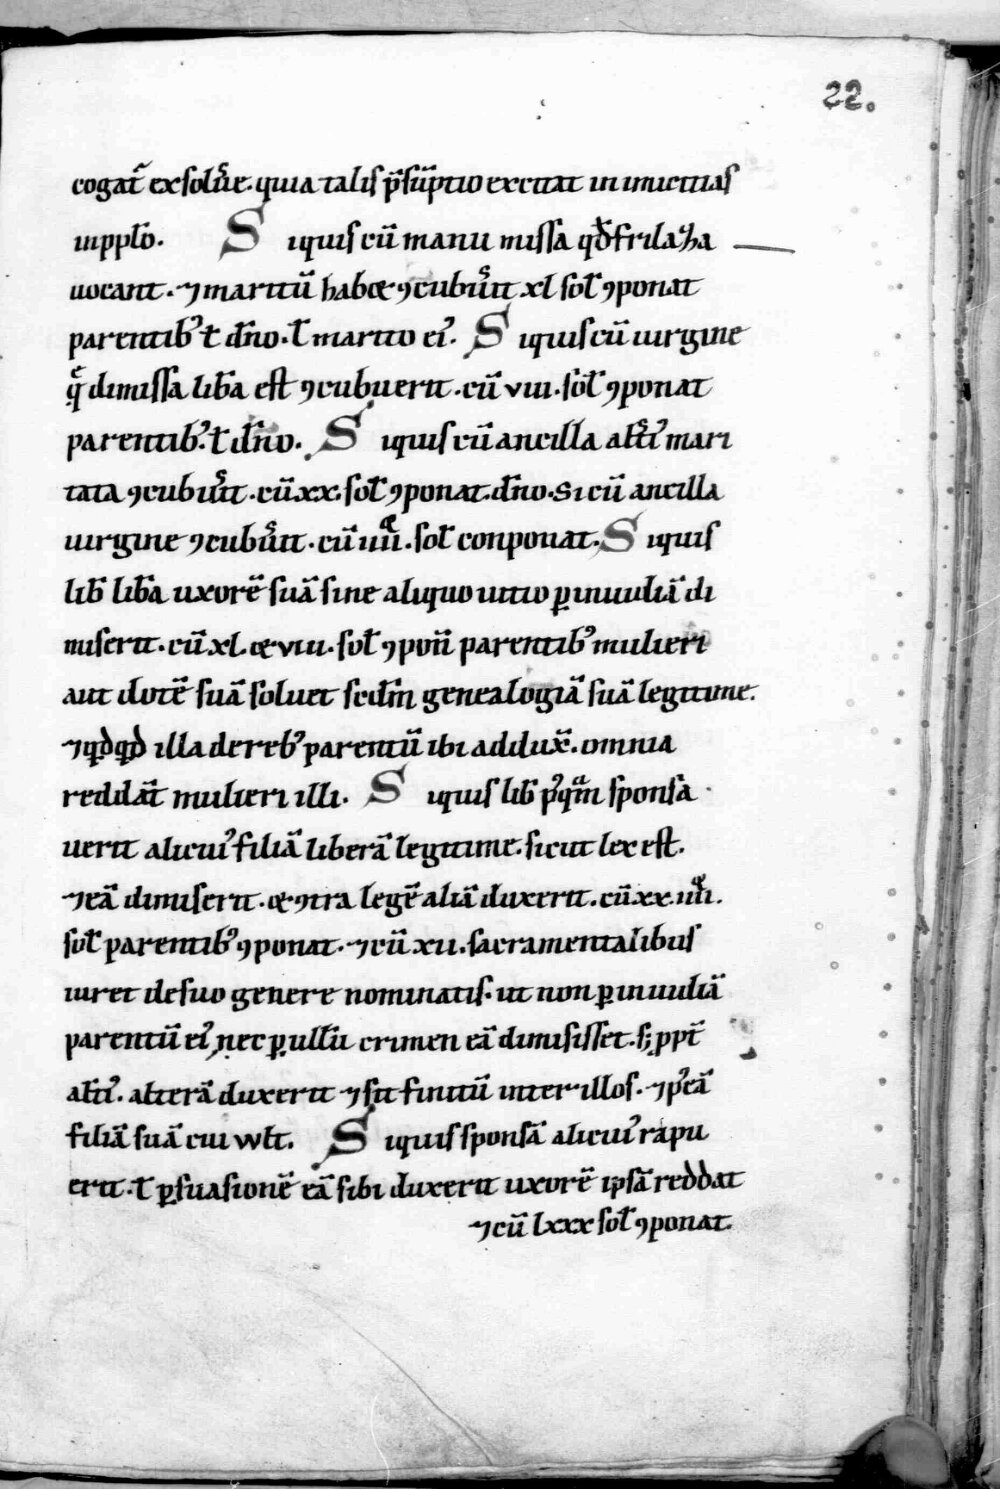 22.
cogat᷒ exsolu̾e. quia talis p̄sūptio excitat in inicitias
in pplo̅. S iquis cū manu missa qđ frilaʒha
uocant. ⁊ maritū habꝫ ꝯcubu̾it xl sol̄ ꝯponat
parentib᷒ ł dn̄o. ł marito ei᷒. S iquis cū uirgine
q̄ dimissa lib̄a est ꝯcubuerit. cū viii. sol̄ ꝯponat
parentib᷒. ł dn̄o. S iquis cū ancilla alt̾i᷒ mari
tata ꝯcubiu̾it. cū xx. sol̄ ꝯponat. dn̄o. Si cū ancilla
uirgine ꝯcubu̾it. cū iiii. sol̄ conponat. S iquis
lib̄ lib̄a uxorē suā sine aliquo uitio ꝑ inuidiā di
miserit. cū xl. & viii. sol̄ ꝯpon̄ parentib᷒ mulieri
aut dotē suā soluet scdm̄ genealogiā suā legitime.
⁊ qđqđ illa de reb᷒ parentū ibi addux̄. omnia
reddāt mulieri illi. S iquis lib̄ p᷒qm̄ sponsa
uerit alicui᷒ filiā liberā legitime. sicut lex est.
⁊ eā dimiserit. & ꝯtra legē aliā duxerit. cū xx. iiii.
sol̄ parentib᷒ ꝯponat. ⁊ cū xii. sacramentalibus
iuret de suo genere nominatis. ut non ꝑ inuidiā
parentū ei᷒, nec ꝑ ullū crimen eā dimisisset. sꝫ ppt̄
alt̾i᷒. alterā duxerit ⁊ sit finitū inter illos. ⁊ p᷒ eā
filiā suā cui wlt. S iquis sponsā alicui᷒ rapu
erit. ł ꝑsuasionē eā sibi duxerit uxorē ipsā reddat
⁊ cū lxxx sol̄ ꝯponat.